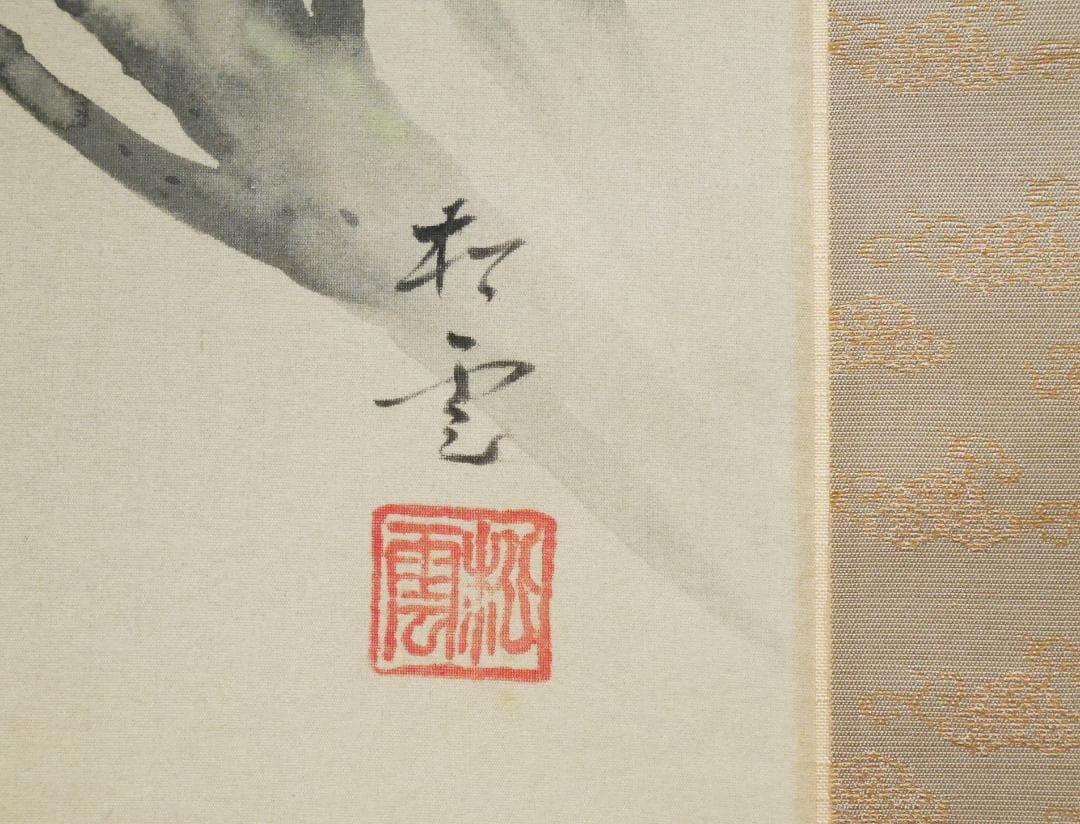 松雲
松雲